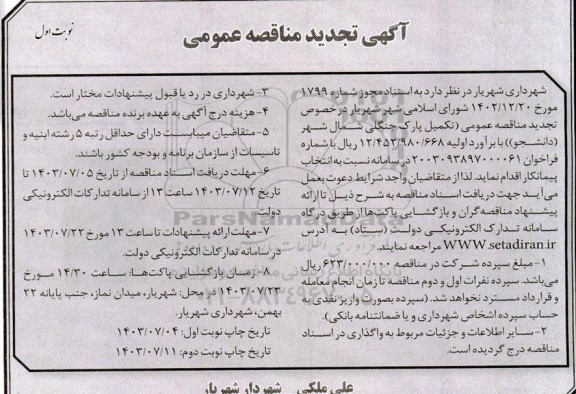 نوبت اول
آگهی تجدید مناقصه عمومی
شهرداری شهریار در نظر دارد به استناد مجوز شماره ۱۷۹۹
مورخ ۱۴۰۲/۱۲/۲۰ شورای اسلامی شهر شهریار درخصوص
تجدید مناقصه عمومی (تکمیل پارک جنگلی شمال شهر
(دانشجو)) با برآورد اولیه ۱۲/۴۵۳/۹۸۰/۶۶۸ ریال با شماره
فراخوان ۲۰۰۳۰۹۳۸۹۷۰۰۰۰۶۱ در سامانه نسبت به انتخاب
پیمانکار اقدام نماید. لذا از متقاضیان واجد شرایط دعوت بعمل
می‌آید جهت دریافت اسناد مناقصه به شرح ذیل تا ارائه
پیشنهاد مناقصه گران و بازگشایی پاکت‌ها از طریق درگاه
سامانه تدارک الکترونیکی دولت (ستاد) به آدرس
WWW.setadiran.ir مراجعه نمایند.
۱-مبلغ سپرده شرکت در مناقصه ۶۲۳/۰۰۰/۰۰۰ ریال
می‌باشد. سپرده نفرات اول و دوم مناقصه تا زمان انجام معامله
و قرارداد مسترد نخواهد شد. (سپرده بصورت واریز نقدی به
حساب سپرده اشخاص شهرداری و یا ضمانتنامه بانکی).
۲-سایر اطلاعات و جزئیات مربوط به واگذاری در اسناد
مناقصه درج گردیده است.
۳- شهرداری در رد یا قبول پیشنهادات مختار است.
۴- هزینه درج آگهی به عهده برنده مناقصه می‌باشد.
۵-متقاضیان میبایست دارای حداقل رتبه ۵ رشته ابنیه و
تاسیسات از سازمان برنامه و بودجه کشور باشند.
۶-مهلت دریافت اسناد مناقصه از تاریخ ۱۴۰۳/۰۷/۰۵ تا
تاریخ ۱۴۰۳/۰۷/۱۲ ساعت ۱۳ از سامانه تدارکات الکترونیکی
دولت.
۷-مهلت ارائه پیشنهادات تا ساعت ۱۳ مورخ ۱۴۰۳/۰۷/۲۲
در سامانه تدارکات الکترونیکی دولت.
۸-زمان بازگشایی پاکت‌ها: ساعت ۱۴/۳۰ مورخ
۱۴۰۳/۰۷/۲۳ در محل: شهریار، میدان نماز، جنب پایانه ۲۲
بهمن، شهرداری شهریار.
تاریخ چاپ نوبت اول: ۱۴۰۳/۰۷/۰۴
تاریخ چاپ نوبت دوم: ۱۴۰۳/۰۷/۱۱
علی ملکی شهردار شهریار